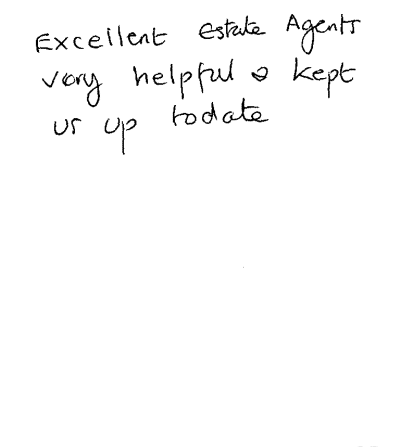 Excellent estate Agents
very helpful & kept
us up todate